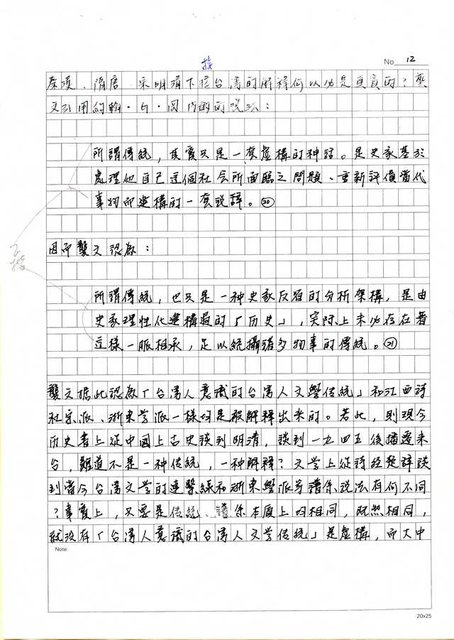 接
No 12
秦漢、隋唐、宋明清下接台灣的解釋何以必是真實的？龔
文引用約翰·白·因內爾的說法：
所謂傳統，其實只是一套虛構的神話。是史家基於
處理他自己這個社會所面臨之問題、重新評價當代
事物而建構的一套說辭。⑳
因而龔文認為：
所謂傳統，也只是一种史家反省的分析架構，是由
史家理性化建構設的「历史」，实际上未必存在著
這樣一脈相承，足以統攝諸多物事的傳統。㉑
龔文據此認為「台灣人意識的台灣人文學傳統」和江西詩
社宗派、浙東学派一樣均是被解釋出來的。若此，則現今
历史書上從中國上古史談到明清，談到一九四五後播遷來
台，難道不是一种传统，一种解釋？文学上從詩經楚辭談
到當今台灣文学的連繫線和浙東學派等譜系說法有何不同
？事實上，只要是传统、譜系本质上均相同，既然相同，
就沒有「台灣人意識的台灣人文學传统」是虛構，而大中
Note
20x25